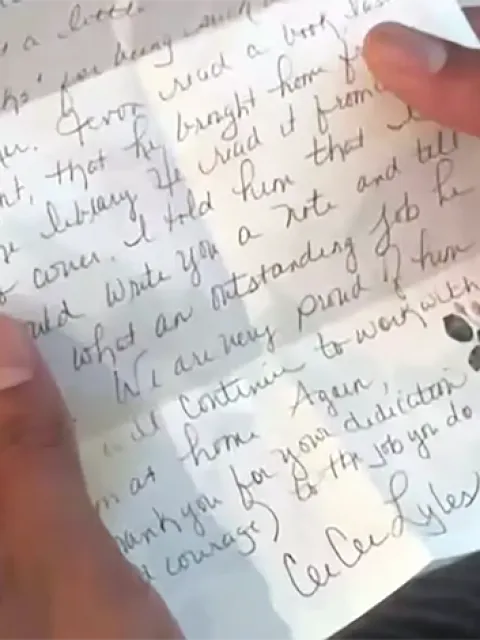 a
for being such
read a book
nt, that he brought home
library. He read it from
cover. I told him that I
uld write you a note and tell
what an outstanding job he
We are very proud of him
ill continue to work with
m at home. Again,
hank you for your dedication
d courage) to the job you do
CeeCee Lyles